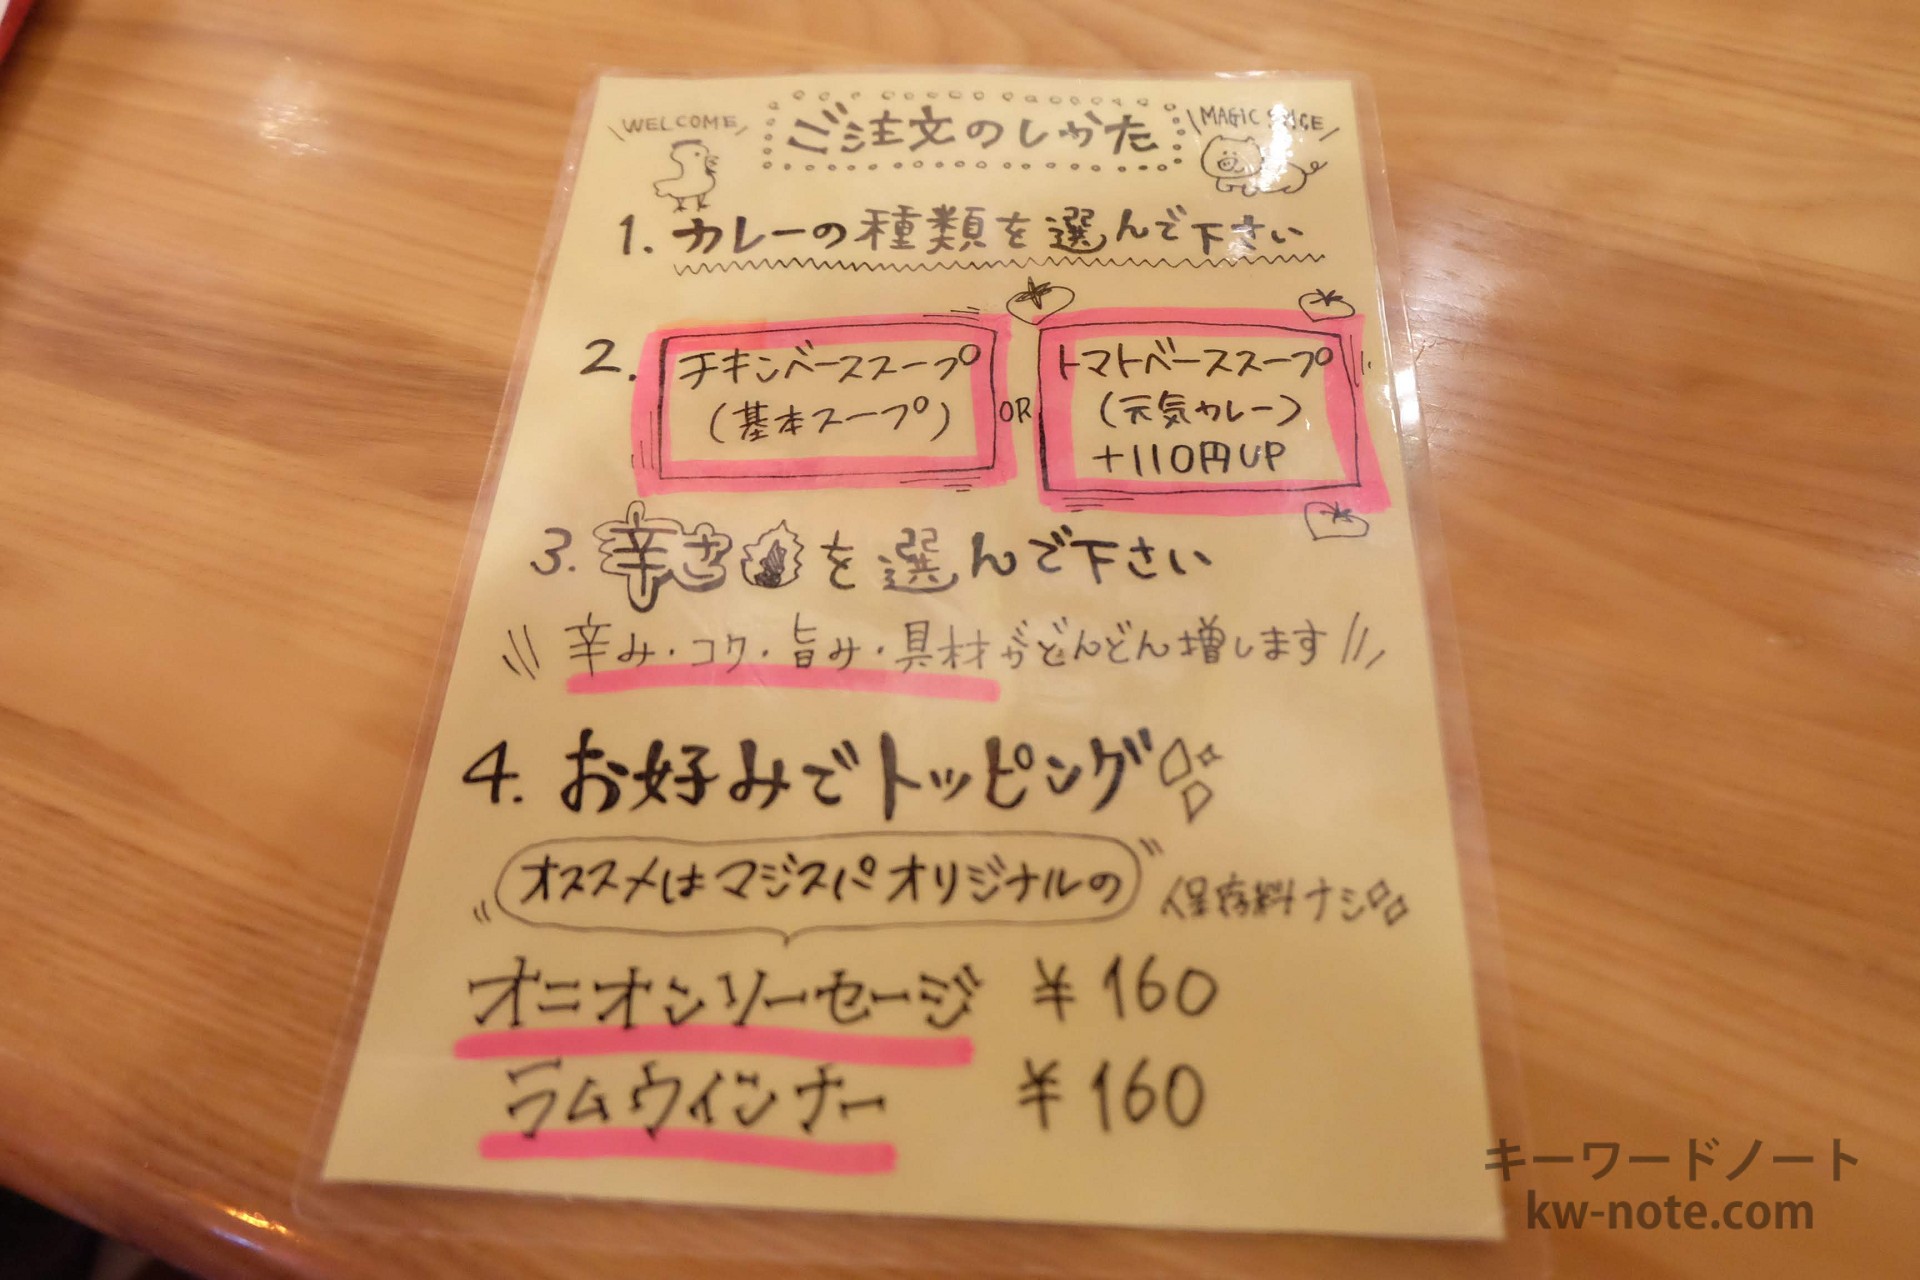 WELCOME
ご注文のしかた
MAGIC SPICE
1. カレーの種類を選んで下さい
2.
チキンベーススープ
(基本スープ)
OR
トマトベーススープ
(元気カレー)
+110円UP
3. 辛さを選んで下さい
辛み・コク・旨み・具材がどんどん増します
4. お好みでトッピング
オススメはマジスパオリジナルの
保存料ナシ
オニオンソーセージ ¥160
ラムウインナー ¥160
キーワードノート
kw-note.com